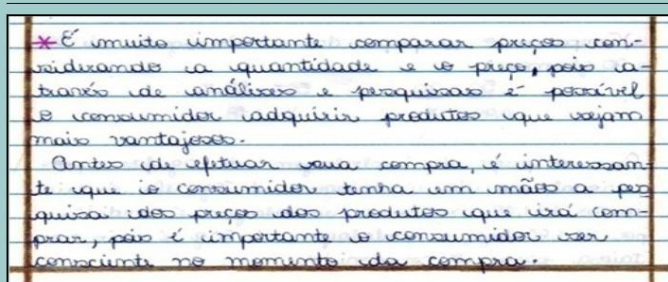 * É muito importante comparar preços con-
siderando a quantidade e o preço, pois a-
través de análises e pesquisas é possível
o consumidor adquirir produtos que sejam
mais vantajosos.
Antes de efetuar sua compra, é interessan-
te que o consumidor tenha em mãos a pes
quisa dos preços dos produtos que irá com-
prar, pois é importante o consumidor ser
consciente no momento da compra.